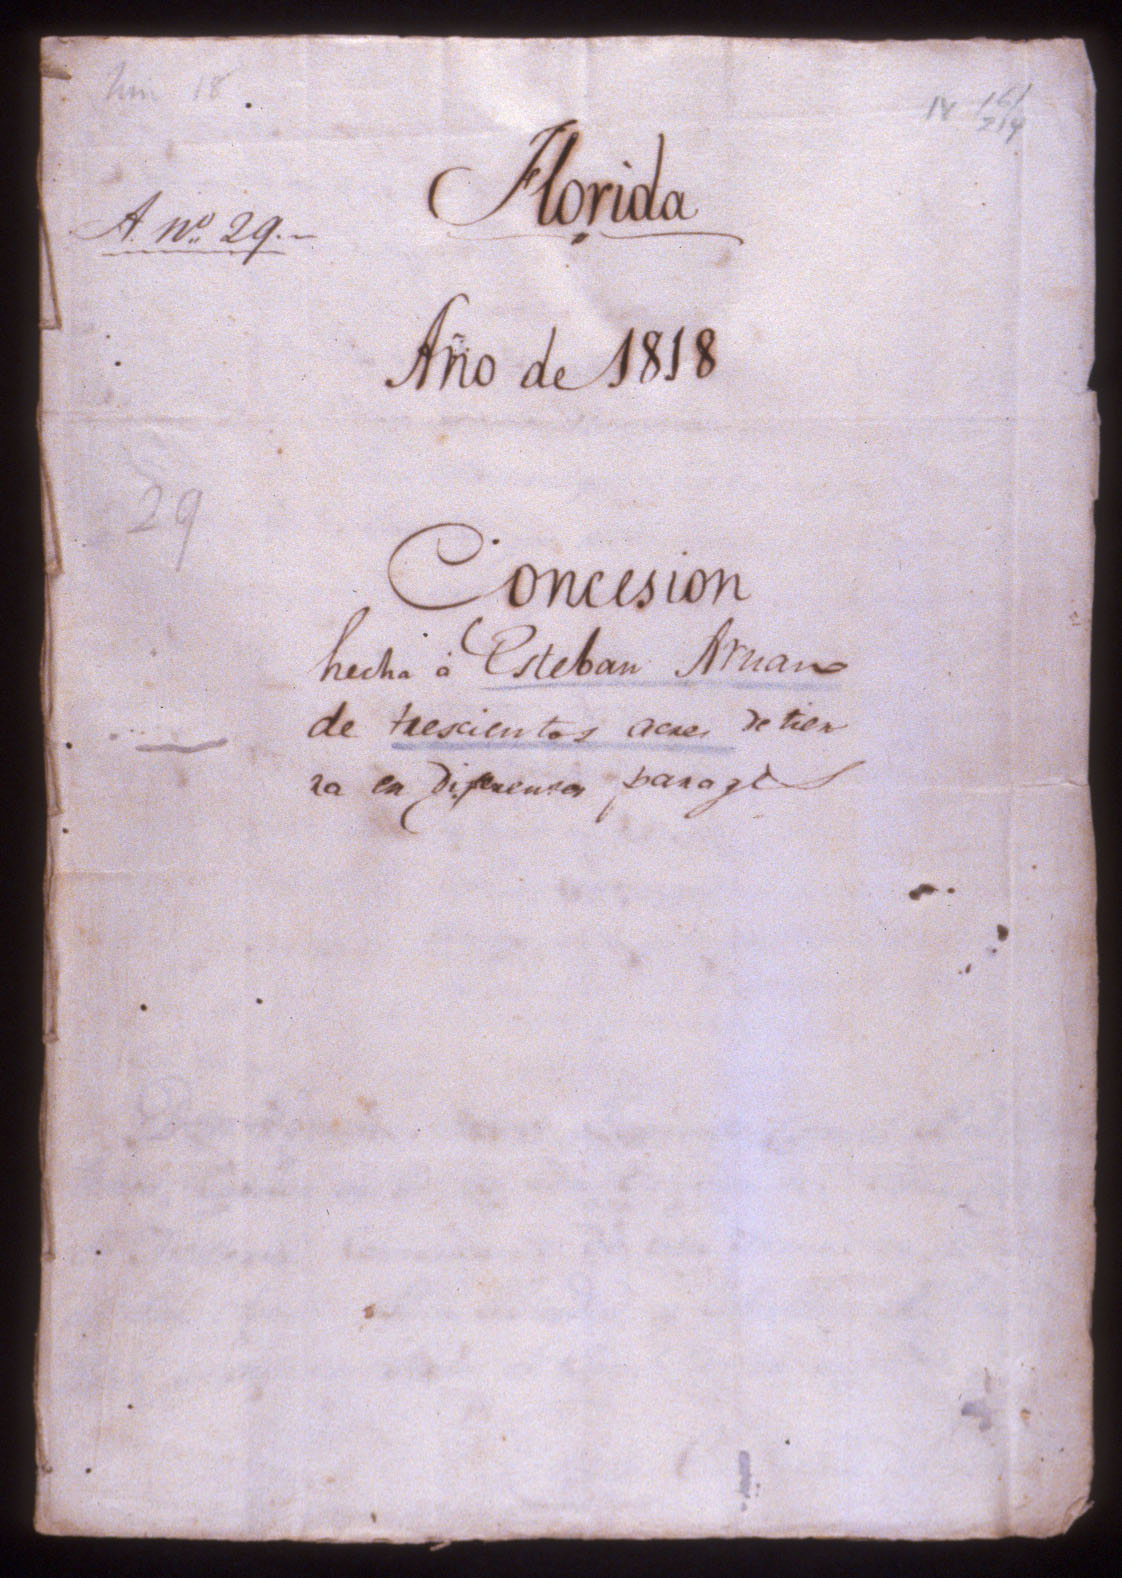 18
Florida
A. Nº 29.
Año de 1818
29
Concesion
hecha á Esteban Arnau
de trescientos acres de tier
ra en diferentes parages